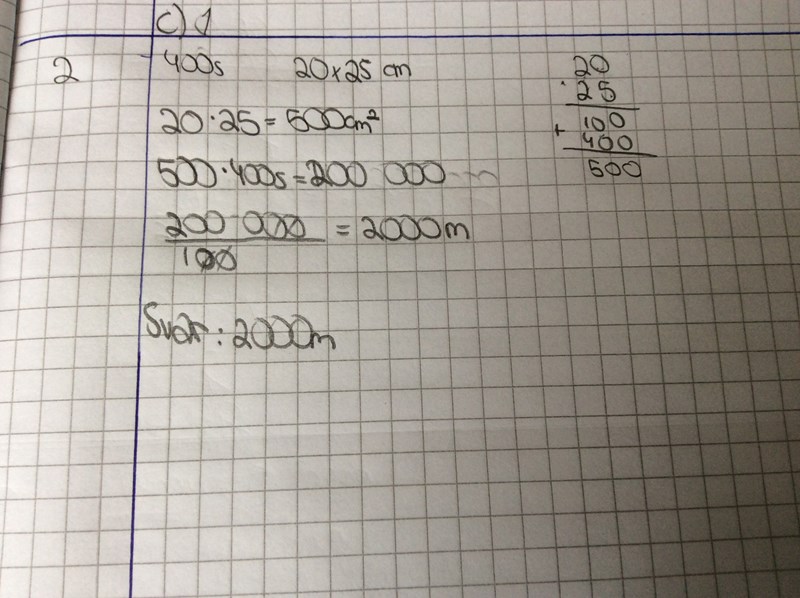 c) 1
2
400s 20x25 cm
20·25=500cm²
500·400s=200 000
200 000
100
= 2000m
Svar: 2000m
20
·25
100
+400
500